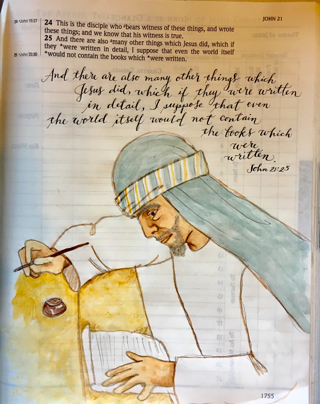 JOHN 21
24 This is the disciple who *bears witness of these things, and wrote
these things; and we know that his witness is true.
25 And there are also *many other things which Jesus did, which if
they *were written in detail, I suppose that even the world itself
*would not contain the books which *were written.
And there are also many other things which
Jesus did, which if they were written
in detail, I suppose that even
the world itself would not contain
the books which
were
written.
John 21:25
1755